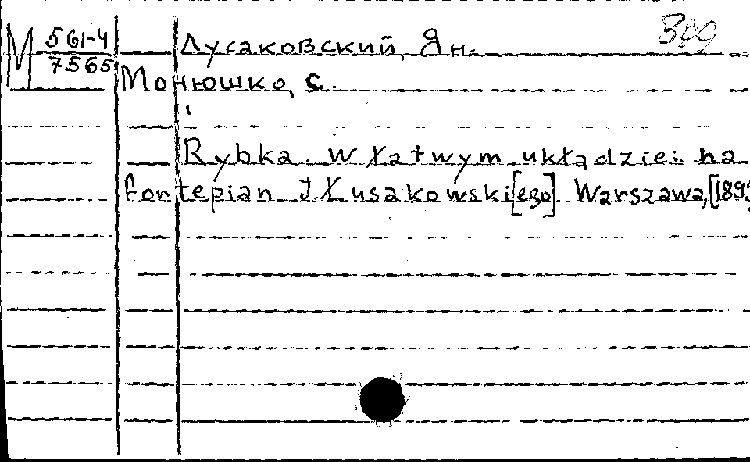 М 561-4
7565
Лусаковский, Ян.
Монюшко, С.
Rybka. W łatwym układzie na
fortepian J Łusakowski[ego] Warszawa, [189